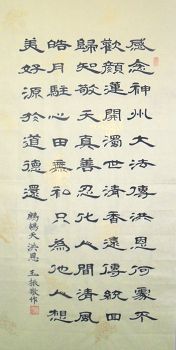 感念神州大法傳洪恩何處不
歡顏蓮開濁世清香遠傳統回
歸知敬天真善忍化人間清風
皓月駐心田無私只為他人想
美好源於道德還
鷓鴣天 洪恩